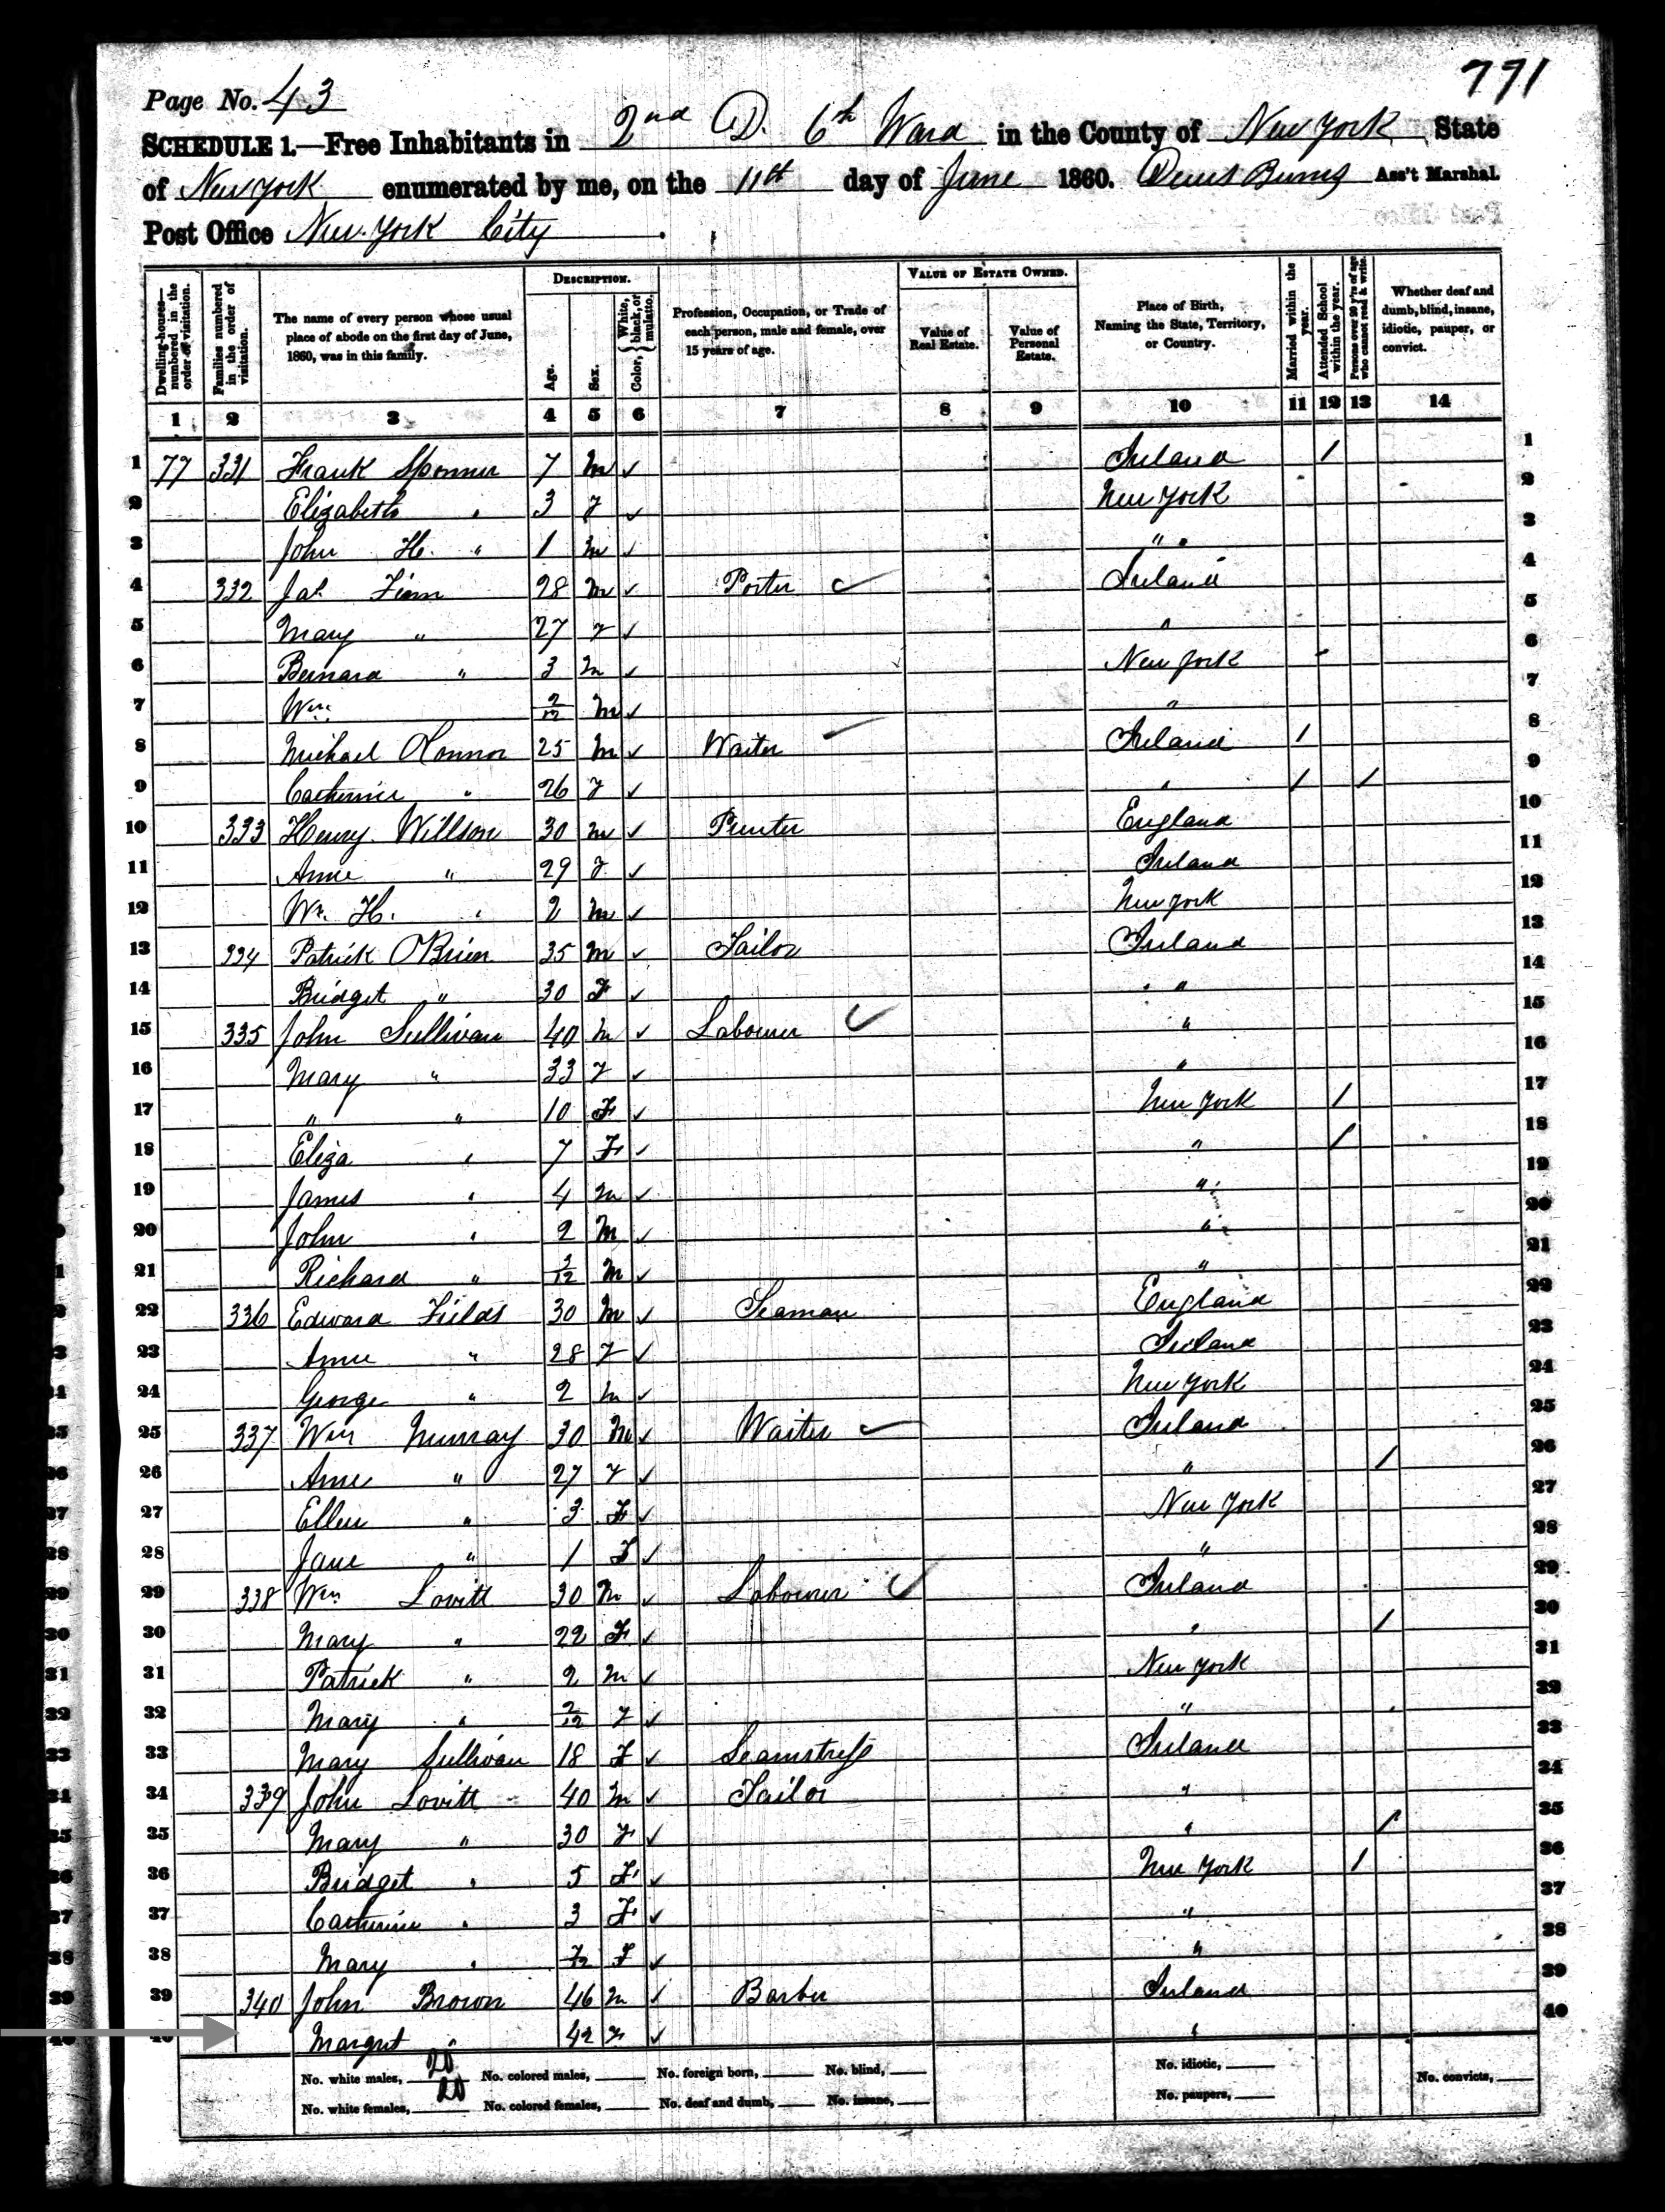 771
Page No. 43
SCHEDULE 1.—Free Inhabitants in 2nd D. 6th Ward in the County of New York State
of New York enumerated by me, on the 11th day of June 1860. Ass't Marshal.
Post Office New York City
Dwelling-houses—numbered in the order of visitation. Families numbered in the order of visitation. The name of every person whose usual place of abode on the first day of June, 1860, was in this family. DESCRIPTION. Age. Sex. Color, { White, black, or mulatto. Profession, Occupation, or Trade of each person, male and female, over 15 years of age. VALUE OF ESTATE OWNED. Value of Real Estate. Value of Personal Estate. Place of Birth, Naming the State, Territory, or Country. Married within the year. Attended School within the year. Persons over 20 y'rs of age who cannot read & write. Whether deaf and dumb, blind, insane, idiotic, pauper, or convict.
1 2 3 4 5 6 7 8 9 10 11 12 13 14
1 77 331 Frank 7 m ✓ Ireland / 1
2 Elizabeth " 3 f ✓ New York 2
3 John H. " 1 m ✓ " 3
4 332 Jas. Finn 28 m ✓ Porter ✓ Ireland 4
5 Mary " 27 f ✓ " 5
6 Bernard " 3 m ✓ New York 6
7 Wm 2/12 m ✓ " 7
8 Michael OConnor 25 m ✓ Waiter Ireland / 8
9 Catherine " 26 f ✓ " / / 9
10 333 Henry Willson 30 m ✓ Printer England 10
11 Anne " 29 f ✓ Ireland 11
12 Wm. H. " 2 m ✓ New York 12
13 334 Patrick OBrien 35 m ✓ Tailor Ireland 13
14 Bridget " 30 F ✓ " 14
15 335 John Sullivan 40 m ✓ Labourer ✓ " 15
16 Mary " 33 f ✓ " 16
17 " " 10 F ✓ New York / 17
18 Eliza " 7 F ✓ " / 18
19 James " 4 m ✓ " 19
20 John " 2 m ✓ " 20
21 Richard " 3/12 m ✓ " 21
22 336 Edward Fields 30 m ✓ Seaman England 22
23 Anne " 28 f ✓ Ireland 23
24 George " 2 m ✓ New York 24
25 337 Wm Murray 30 m ✓ Waiter ✓ Ireland 25
26 Anne " 27 f ✓ " / 26
27 Ellen " 3 F ✓ New York 27
28 Jane " 1 F ✓ " 28
29 338 Wm Lovitt 30 m ✓ Labourer ✓ Ireland 29
30 Mary " 22 F ✓ " / 30
31 Patrick " 2 m ✓ New York 31
32 Mary " 2/12 f ✓ " 32
33 Mary Sullivan 18 F ✓ Seamstress Ireland 33
34 339 John Lovitt 40 m ✓ Tailor " 34
35 Mary " 30 f ✓ " / 35
36 Bridget " 5 F ✓ New York / 36
37 Catherine " 3 F ✓ " 37
38 Mary " F ✓ " 38
39 340 John Brown 46 m ✓ Barber Ireland 39
40 Margret " 42 f ✓ " 40
No. white males, 20 No. colored males, No. foreign born, No. blind, No. idiotic,
No. white females, 20 No. colored females, No. deaf and dumb, No. insane, No. paupers, No. convicts,